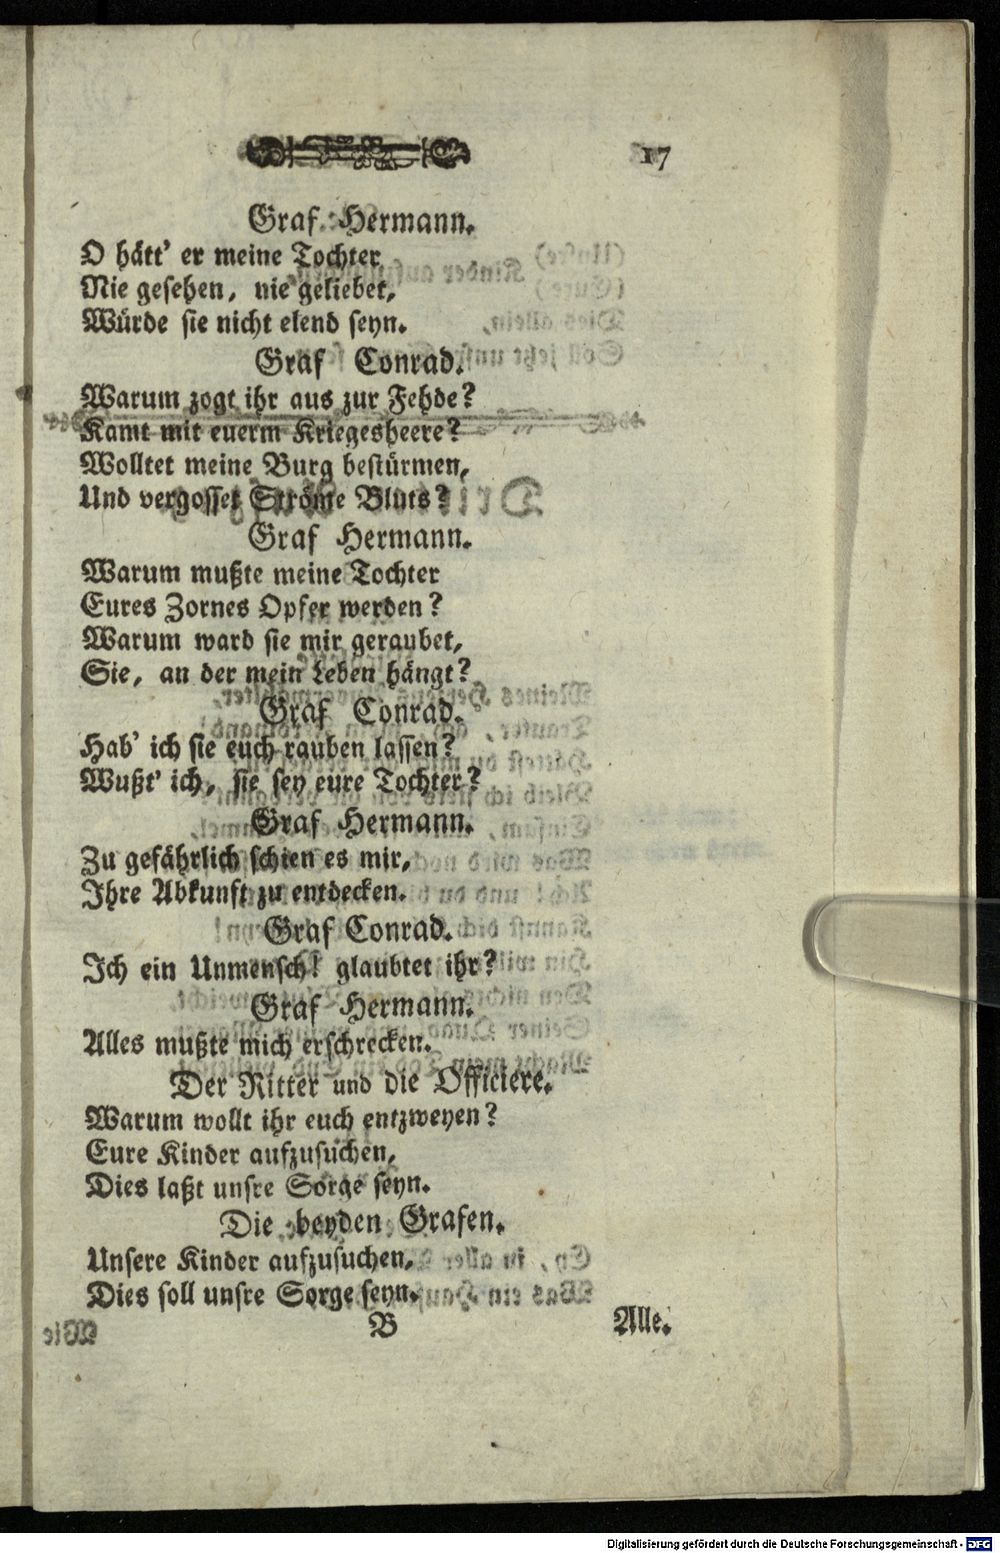 17
Graf Hermann.
O hätt' er meine Tochter
Nie gesehen, nie geliebet,
Würde sie nicht elend seyn.
Graf Conrad.
Warum zogt ihr aus zur Fehde?
Kamt mit euerm Kriegesheere?
Wolltet meine Burg bestürmen,
Und vergosset Ströme Bluts?
Graf Hermann.
Warum mußte meine Tochter
Eures Zornes Opfer werden?
Warum ward sie mir geraubet,
Sie, an der mein Leben hängt?
Graf Conrad.
Hab' ich sie euch rauben lassen?
Wußt' ich, sie sey eure Tochter?
Graf Hermann.
Zu gefährlich schien es mir,
Ihre Abkunft zu entdecken.
Graf Conrad.
Ich ein Unmensch! glaubtet ihr?
Graf Hermann.
Alles mußte mich erschrecken.
Der Ritter und die Officiere.
Warum wollt ihr euch entzweyen?
Eure Kinder aufzusuchen,
Dies laßt unsre Sorge seyn.
Die beyden Grafen.
Unsere Kinder aufzusuchen,
Dies soll unsre Sorge seyn.
B Alle.
Digitalisierung gefördert durch die Deutsche Forschungsgemeinschaft - DFG